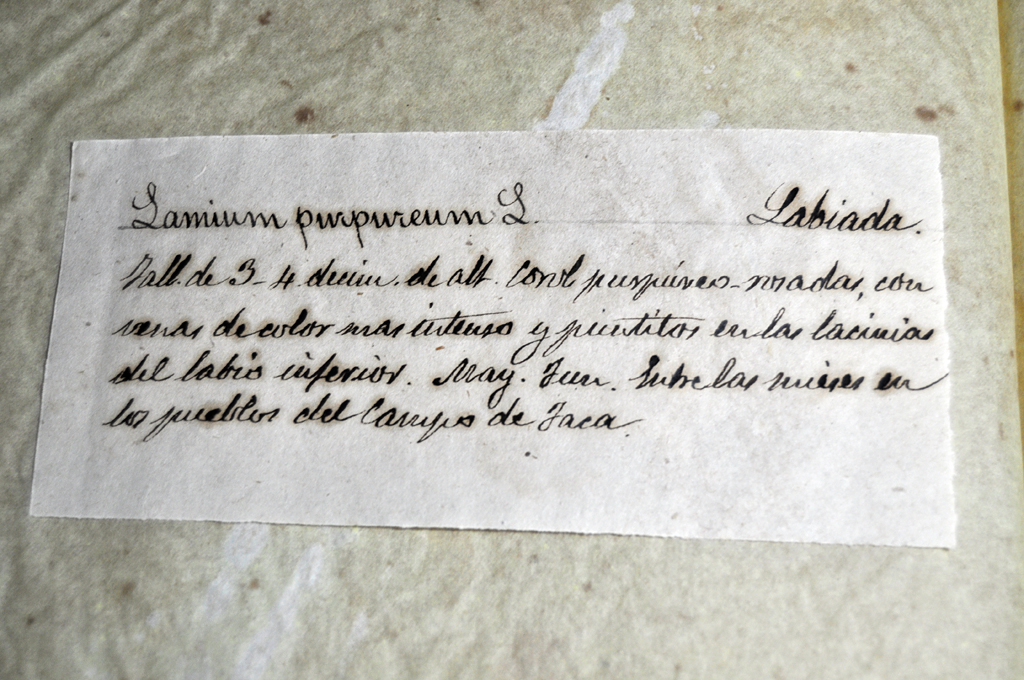 Lamium purpureum L. Labiada.
Tall. de 3-4 decim. de alt. Corol purpúreo-rosadas, con
venas de color mas intenso y puntitos en las lacinias
del labio inferior. May. Jun. Entre las mieses en
los pueblos del Campo de Jaca